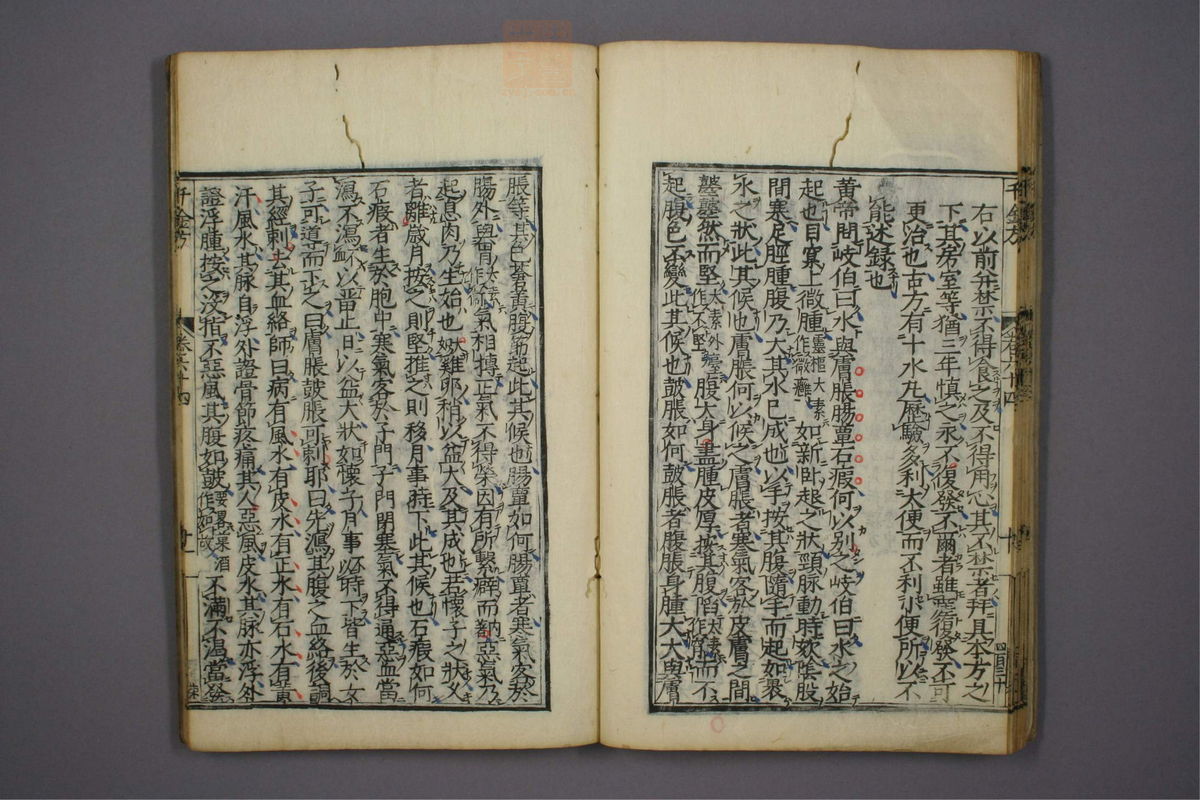 右以前并禁不得食之及不得用心其不禁者并具本方之
下其房室等猶三年慎之永不復發不爾者雖瘥復發不可
更治也古方有十水丸歷驗多利大便而不利小便所以不
能述錄也
黃帝問岐伯曰水與膚脹腸蕈石瘕何以別之岐伯曰水之始
起也目窠上微腫靈樞太素作微癰如新臥起之狀頸脉動時欬陰股
間寒足脛腫腹乃大其水已成也以手按其腹隨手而起如裹
水之狀此其候也膚脹何以候之膚脹者寒氣客於皮膚之間
𪔣𪔣然而堅太素外臺作不堅腹大身盡腫皮厚按其腹陷太素作窅而不
起腹色不變此其候也鼓脹如何鼓脹者腹脹身腫大大與膚
脹等其色蒼黃腹筋起此其候也腸蕈如何腸蕈者寒氣客於
腸外與胃太素作衛氣相搏正氣不得榮因有所繫癖而內著惡氣乃
起息肉乃生始也如雞卵稍以益大及其成也若懷子之狀久
者離歲月按之則堅推之則移月事時下此其候也石瘕如何
石瘕者生於胞中寒氣客於子門子門閉塞氣不得通惡血當
瀉不瀉血不以留止日以益大狀如懷子月事不以時下皆生於女
子可導而下之曰膚脹鼓脹可刺耶曰先瀉其腹之血絡後調
其經刺去其血絡師曰病有風水有皮水有正水有石水有黃
汗風水其脉自浮外證骨節疼痛其人惡風皮水其脉亦浮外
證浮腫按之沒指不惡風其腹如鼓要略巢源作如故不滿不渴當發
千金方
卷廿四
千金方
卷廿四